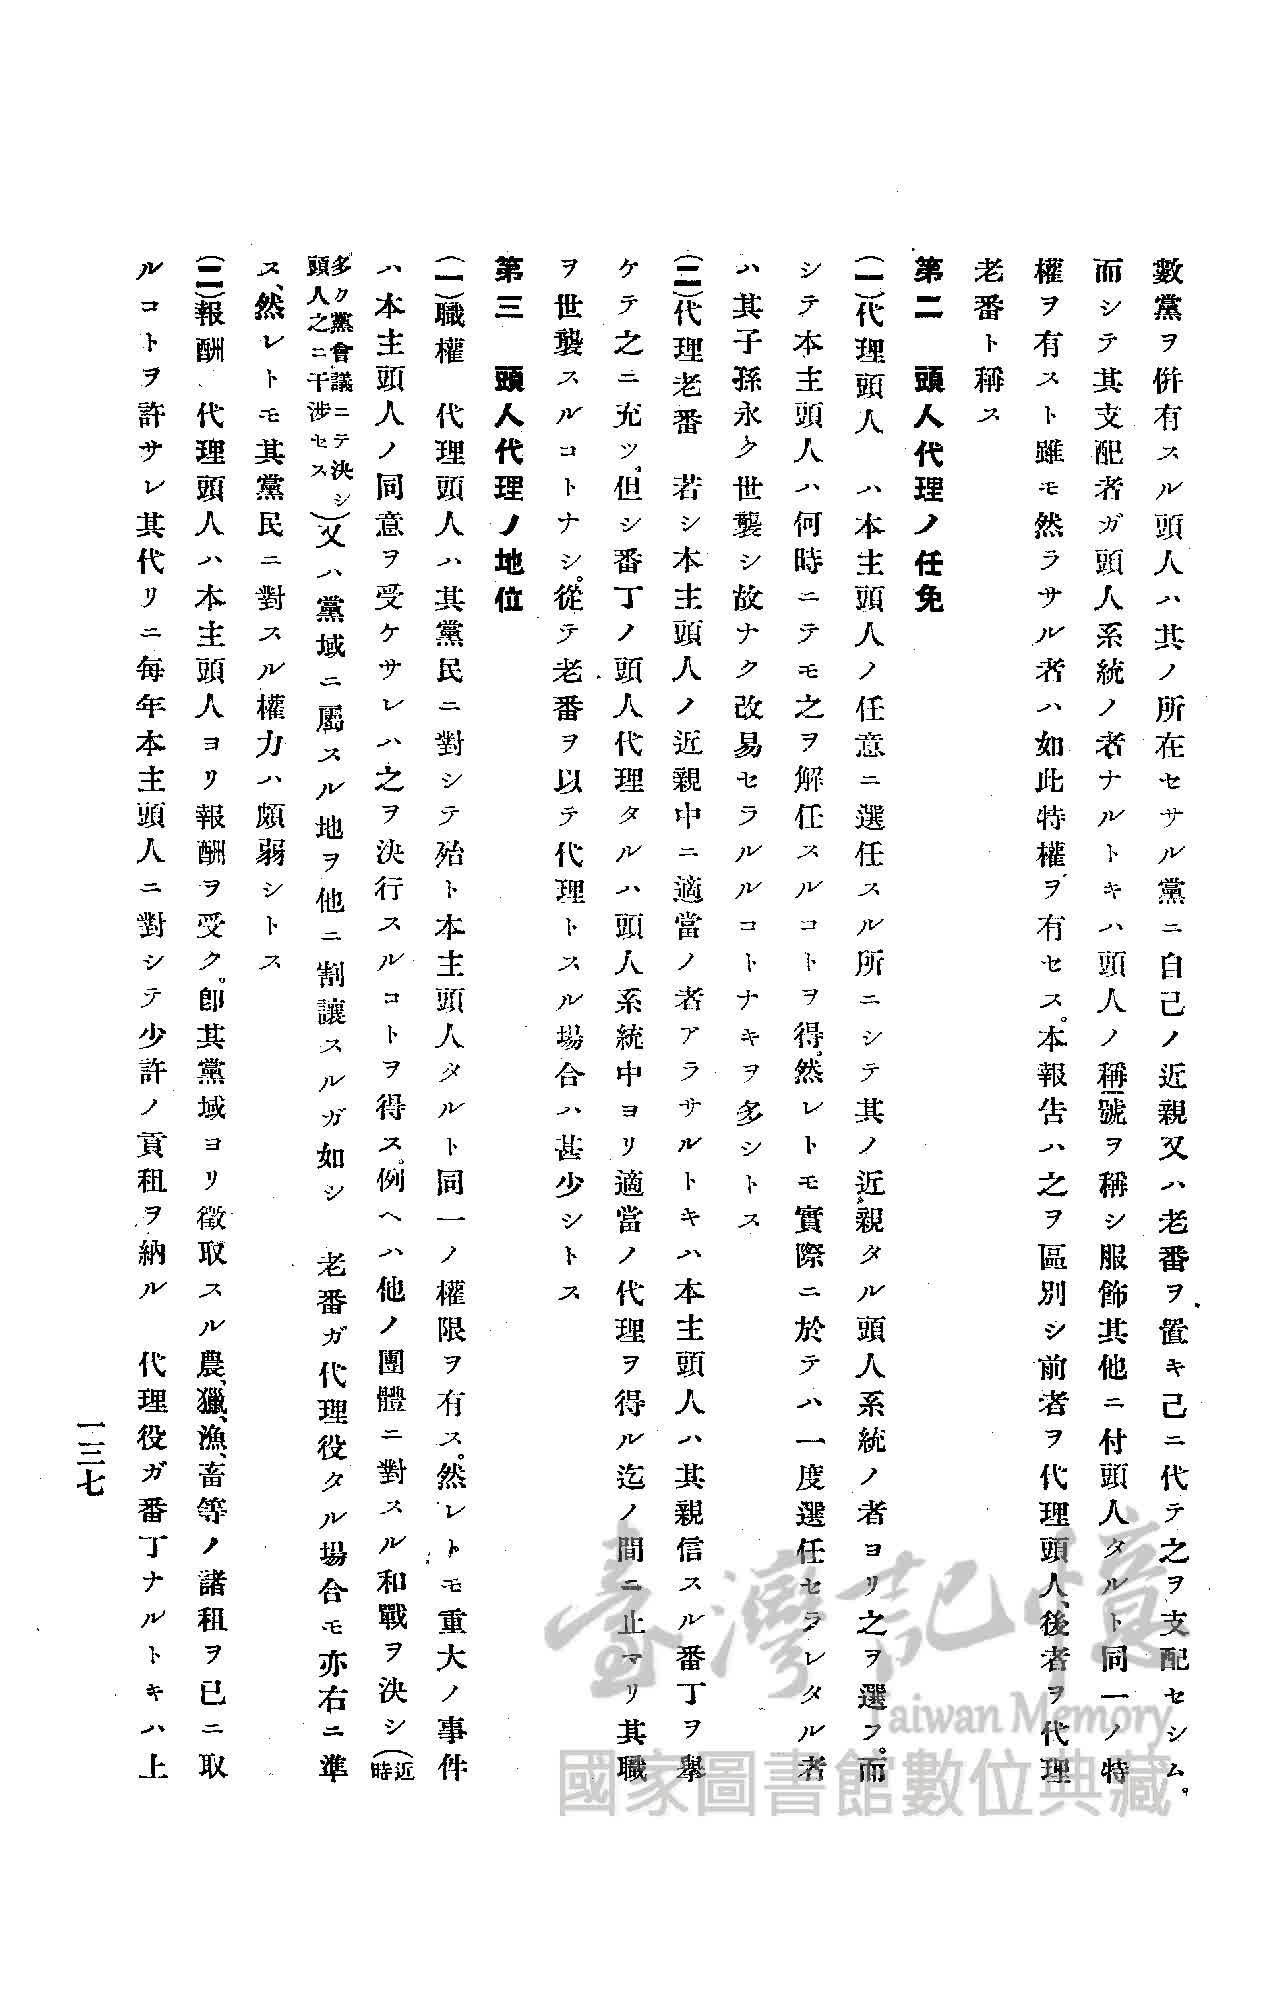 數黨ヲ併有スル頭人ハ其ノ所在セサル黨ニ自己ノ近親又ハ老番ヲ置キ己ニ代テ之ヲ支配セシム。
而シテ其支配者ガ頭人系統ノ者ナルトキハ頭人ノ稱號ヲ稱シ服飾其他ニ付頭人タルト同一ノ特
權ヲ有スト雖モ然ラサル者ハ如此特權ヲ有セス。本報告ハ之ヲ區別シ前者ヲ代理頭人、後者ヲ代理
老番ト稱ス
第二　頭人代理ノ任免
(一)代理頭人　ハ本主頭人ノ任意ニ選任スル所ニシテ其ノ近親タル頭人系統ノ者ヨリ之ヲ選フ。而
シテ本主頭人ハ何時ニテモ之ヲ解任スルコトヲ得。然レトモ實際ニ於テハ一度選任セラレタル者
ハ其子孫永ク世襲シ故ナク改易セラルルコトナキヲ多シトス
(二)代理老番　若シ本主頭人ノ近親中ニ適當ノ者アラサルトキハ本主頭人ハ其親信スル番丁ヲ擧
ケテ之ニ充ツ。但シ番丁ノ頭人代理タルハ頭人系統中ヨリ適當ノ代理ヲ得ル迄ノ間ニ止マリ其職
ヲ世襲スルコトナシ。從テ老番ヲ以テ代理トスル場合ハ甚少シトス
第三　頭人代理ノ地位
(一)職權　代理頭人ハ其黨民ニ對シテ殆ト本主頭人タルト同一ノ權限ヲ有ス。然レトモ重大ノ事件
ハ本主頭人ノ同意ヲ受ケサレハ之ヲ決行スルコトヲ得ス。例ヘハ他ノ團體ニ對スル和戰ヲ決シ(近時
多ク黨會議ニテ決シ頭人之ニ干涉セス)又ハ黨域ニ屬スル地ヲ他ニ割讓スルガ如シ　老番ガ代理役タル場合モ亦右ニ準
ス、然レトモ其黨民ニ對スル權力ハ頗弱シトス
(二)報酬　代理頭人ハ本主頭人ヨリ報酬ヲ受ク。卽其黨域ヨリ徵取スル農、獵、漁、畜等ノ諸租ヲ已ニ取
ルコトヲ許サレ其代リニ每年本主頭人ニ對シテ少許ノ貢租ヲ納ル　代理役ガ番丁ナルトキハ上
一三七
臺灣記憶
Taiwan Memory
國家圖書館數位典藏